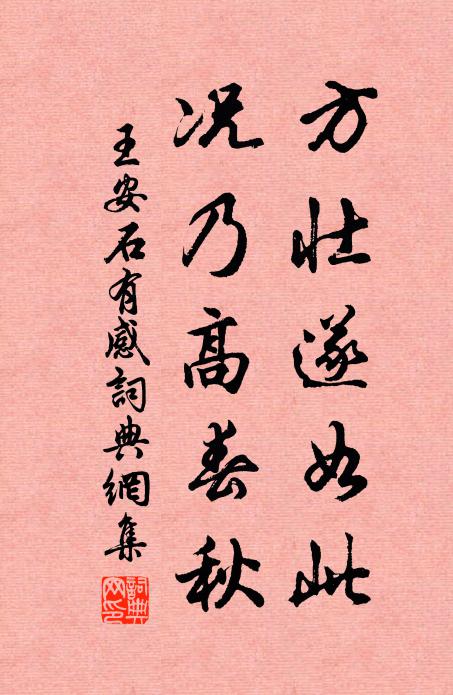 方壮遂如此
况乃高春秋
王安石有感詞典網集
詞典網印